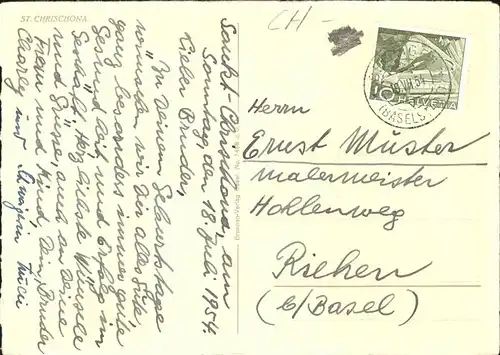 ST. CHRISCHONA.
CH-
Sankt-Chrischona, am
Sonntag, den 18. Juli 1954.
Lieber Bruder,
Zu Deinem Geburtstage
wünschen wir Dir alles Gute
ganz besonders immer gute
Gesundheit, und Erfolg im
Geschäft. Herzlichste Wünsche
und Grüsse, auch an Deine
Frau und Kind, Dein Bruder
und Schwägerin
HELVETIA
10
18.VII.54
(BASEL
Herrn
Ernst Müster
Malermeister
Hohlenweg
Riehen
(b/Basel)